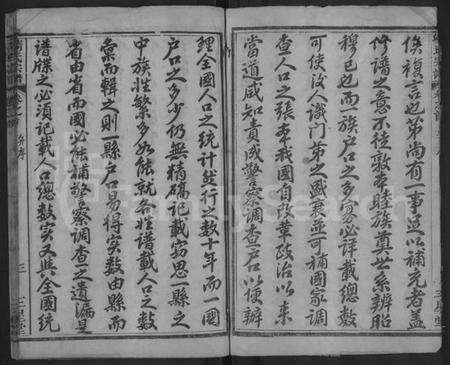 俟複言也第尚有一事並以補充者蓋
修譜之意不徒敦本睦族奠世系辨昭
穆已也而族戶口之多寡必詳載總數
可使後人識門第之盛衰並可補國家調
查人口之張本我國自改業政治以來
當道咸知責成警察調查戶口以便辦
經全國人口之統計然行之數十年而一國
戶口之多少仍無精確記載竊思一縣之
中族姓繁多如能就各姓譜載人口之數
彙而輯之則一縣戶口易得實數由縣而
省由省而國必能補警察調查之遺漏是
譜牒之必須記載人口總數實又與全國統